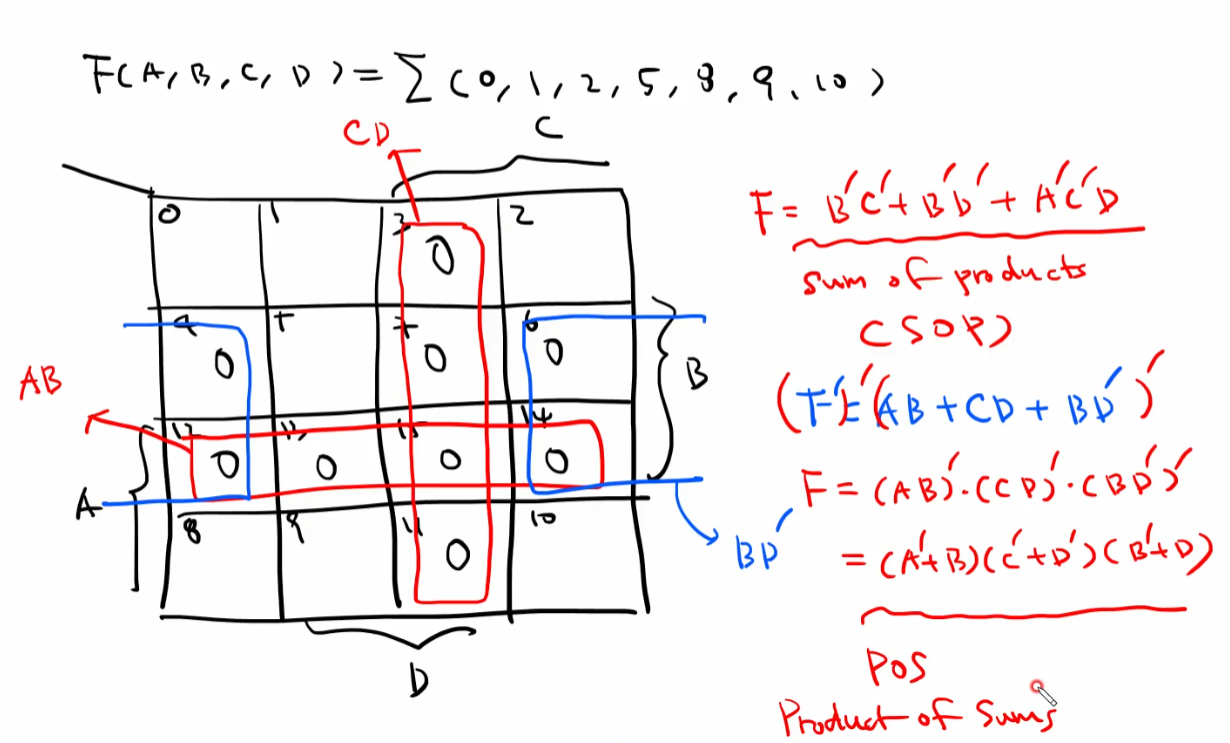 F(A, B, C, D) = ∑ (0, 1, 2, 5, 8, 9, 10)
CD
C
0 1 3 2
0
4 5 7 6
0 0 0
B
AB
12 13 15 14
0 0 0 0
A
8 9 11 10
0
D
BD'
F = B'C' + B'D' + A'C'D
sum of products
(SOP)
(F')' = (AB + CD + BD')'
F = (AB)'·(CD)'·(BD')'
= (A'+B)(C'+D')(B'+D)
POS
Product of Sums